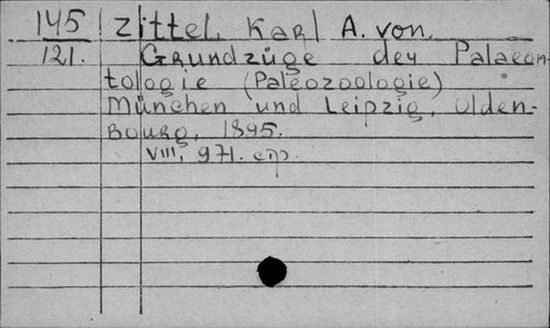 145 Zittel, Karl A. von.
121. Grundzüge der Palaeon-
tologie (Paleozoologie)
München und Leipzig, Olden-
bourg, 1895.
VIII, 971. стр.